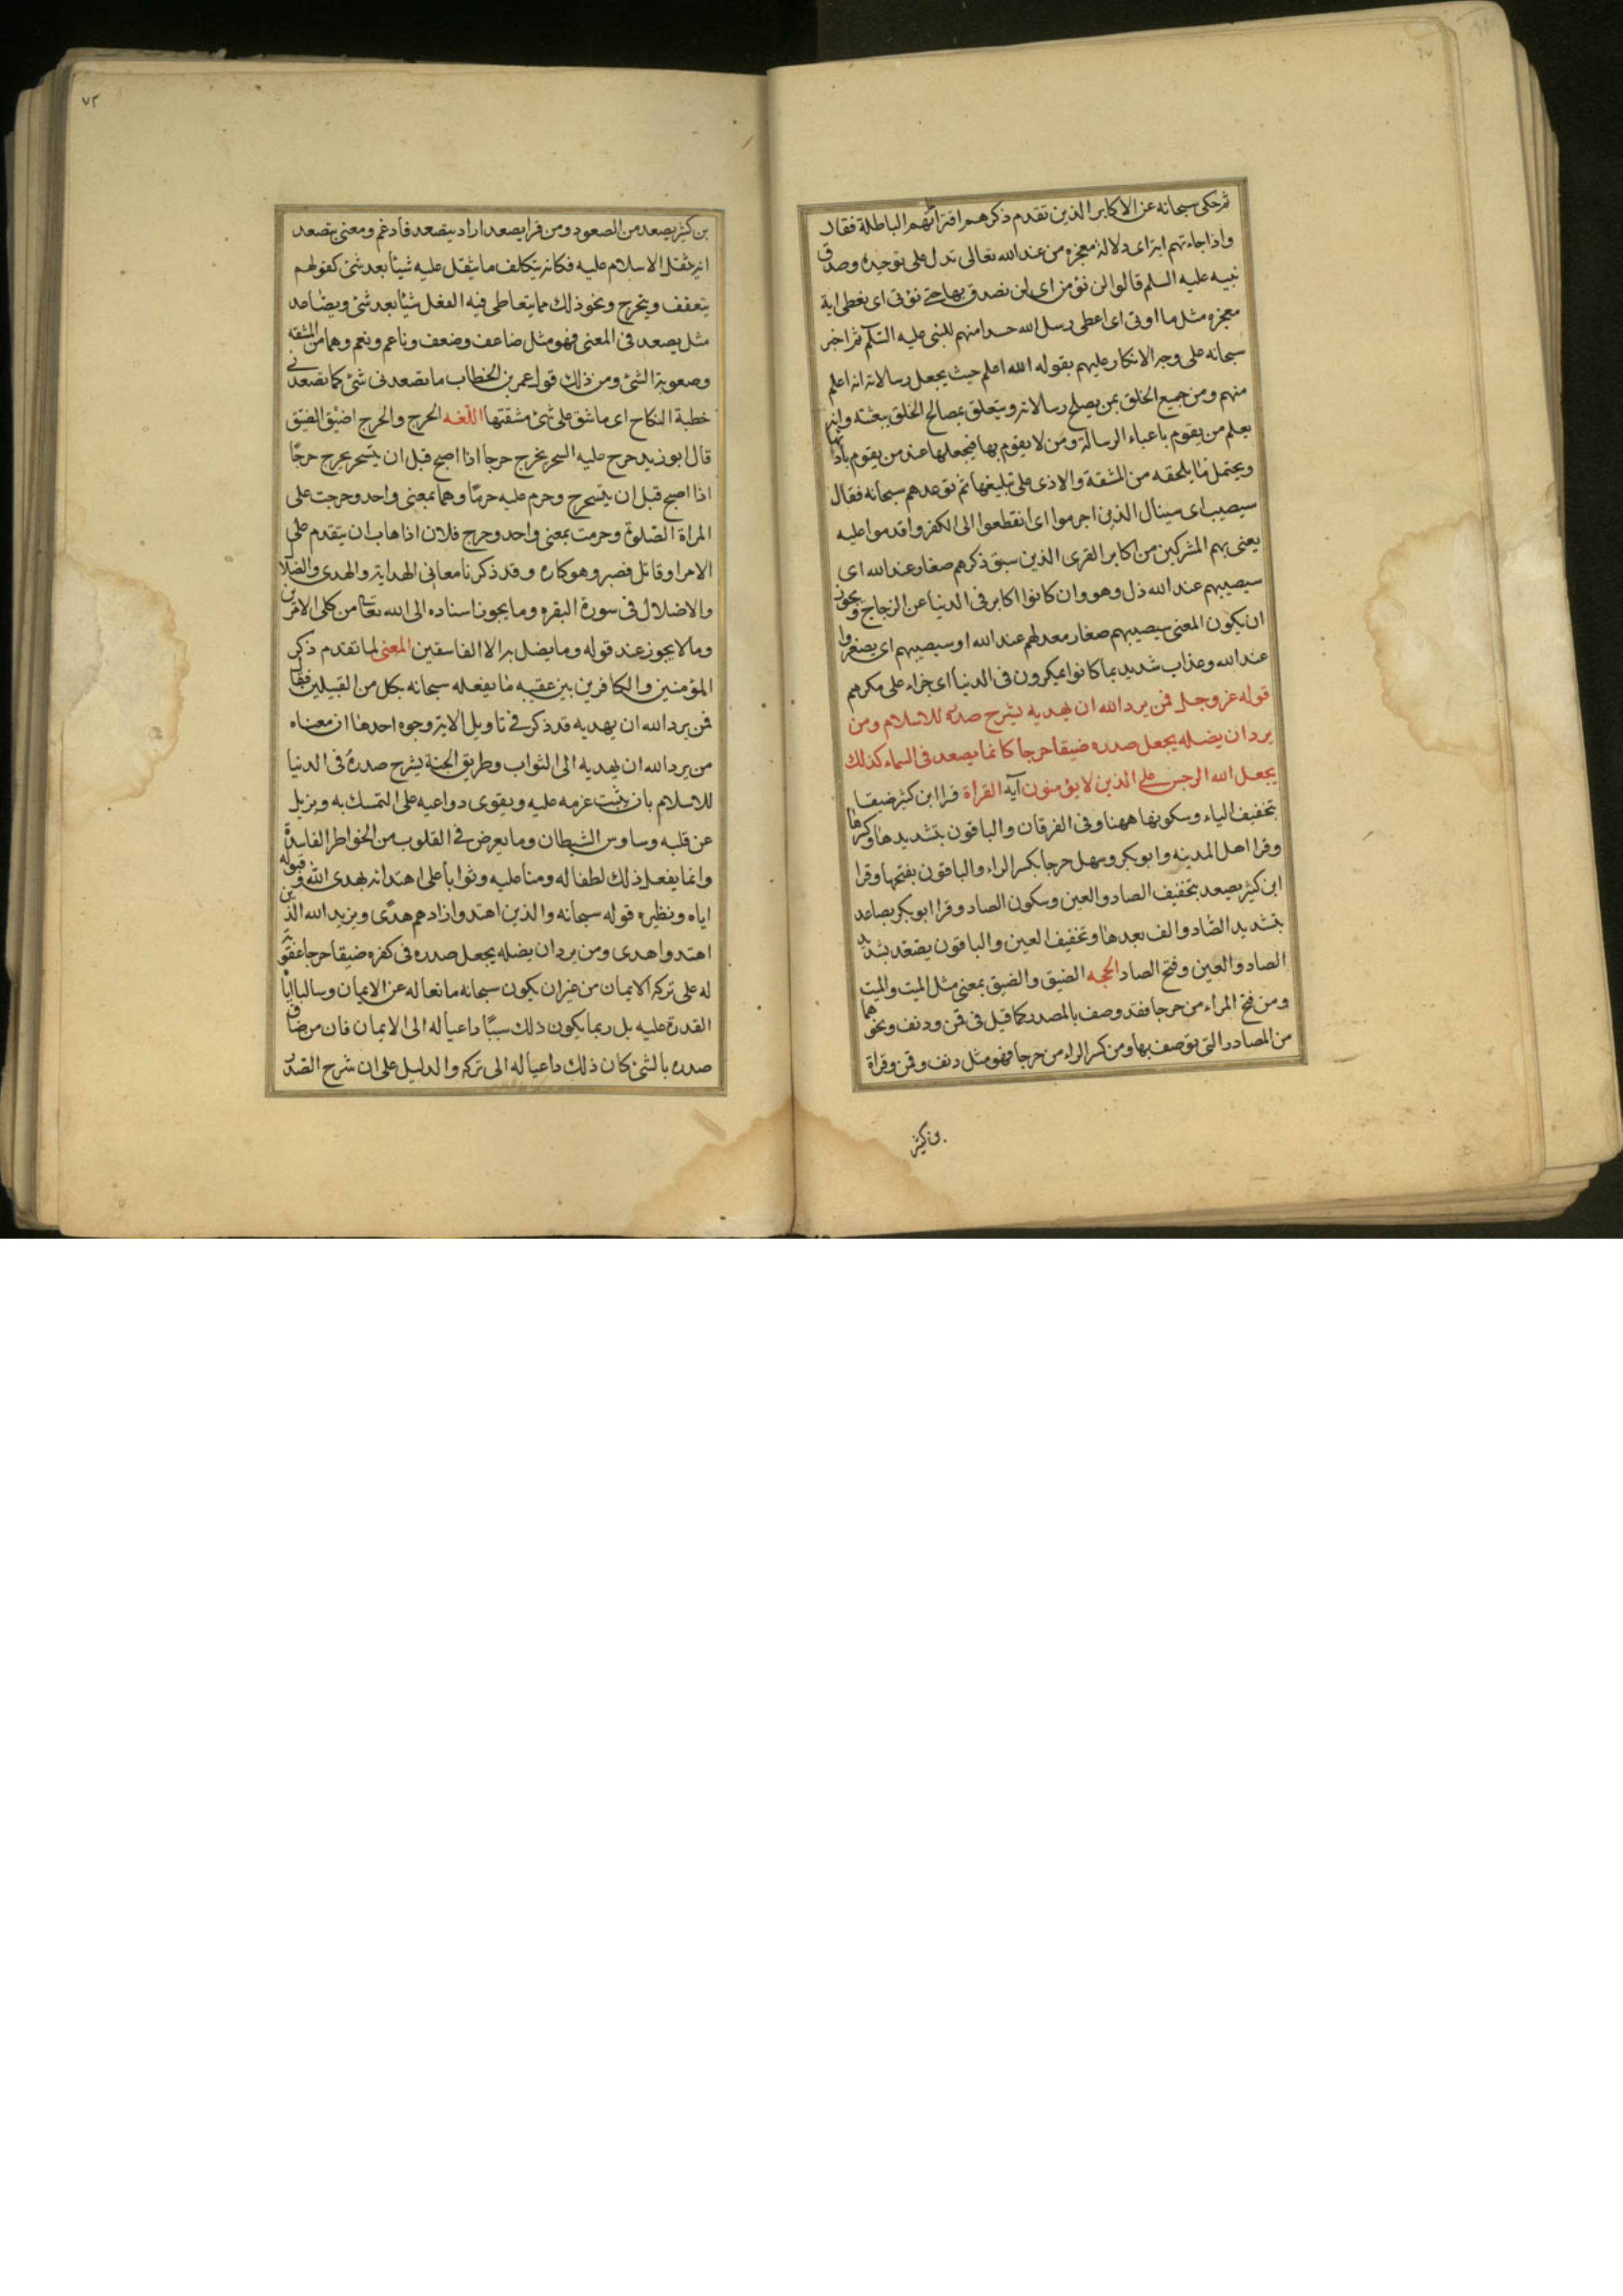 ثم حكى سبحانه عن الاكابر الذين تقدم ذكرهم اقتراتهم الباطلة فقال
واذا جاءتهم اية اى دلالة معجزة من عند الله تعالى تدل على توحيده وصدق
نبيه عليه السلم قالوا لن نؤمن اى لن نصدق بها حتى نؤتى اى نعطى اية
معجزه مثل ما اوتى اى اعطى رسل الله حسدا منهم للنبى عليه السلم ثم اخبر
سبحانه على وجه الانكار عليهم بقوله الله اعلم حيث يجعل رسالاته انه اعلم
منهم ومن جميع الخلق بمن يصلح رسالاته ويتعلق بمصالح الخلق ببعثه وانه
يعلم من يقوم باعباء الرسالة ومن لا يقوم بها فيجعلها عند من يقوم بادائها
ويحتمل ما يلحقه من المشقة والاذى على تبليغها ثم توعدهم سبحانه فقال
سيصيب اى سينال الذين اجرموا اى انقطعوا الى الكفر واقدموا عليه
يعنى بهم المشركين من اكابر القرى الذين سبق ذكرهم صغار عند الله اى
سيصيبهم عند الله ذل وهو وان كانوا اكابر فى الدنيا عن الزجاج ويجوز
ان يكون المعنى سيصيبهم صغار معد لهم عند الله او سيصيبهم اى يصغروا
عند الله وعذاب شديد بما كانوا يمكرون فى الدنيا اى جزاء على مكرهم
قوله عز وجل فمن يرد الله ان يهديه يشرح صدره للاسلام ومن
يرد ان يضله يجعل صدره ضيقا حرجا كانما يصعد فى السماء كذلك
يجعل الله الرجس على الذين لا يؤمنون آية القرأة قرا ابن كثير ضيقا
بتخفيف الياء وسكونها ههنا وفى الفرقان والباقون بتشديدها وكسرها
وقرا اهل المدينه وابو بكر وسهل حرجا بكسر الراء والباقون بفتحها وقرا
ابن كثير يصعد بتخفيف الصاد والعين وسكون الصاد وقرا ابو بكر يصاعد
بتشديد الصاد والف بعدها وتخفيف العين والباقون يصعد بتشديد
الصاد والعين وفتح الصاد الحجه الضيق والضيق بمعنى مثل الميت والميت
ومن فتح الراء من حرجا فقد وصف بالمصدر كما قيل فى قمن ودنف ونحوهما
من المصادر التى توصف بها ومن كسر الراء من حرجا فهو مثل دنف وقمن وقراة
بن كثير
٧٢
بن كثير يصعد من الصعود ومن قرا يصعد اراد يتصعد فادغم ومعنى يتصعد
انه يثقل الاسلام عليه فكانه يتكلف ما يثقل عليه شيئا بعد شئ كقولهم
يتعفف ويتحرج ونحو ذلك مما يتعاطى فيه الفعل شيئا بعد شئ ويصاعد
مثل يصعد فى المعنى فهو مثل ضاعف وضعف وناعم ونعم وهما من المشقه
وصعوبة الشئ ومن ذلك قول عمر بن الخطاب ما تصعدنى شئ كما تصعدنى
خطبة النكاح اى ما شق على شئ مشقتها اللغه الحرج والحرج اضيق الضيق
قال ابو زيد حرج عليه السحر يحرج حرجا اذا اصبح قبل ان يتسحر يحرج حرجا
اذا اصبح قبل ان يتسحر وحرم عليه حرما وهما بمعنى واحد وحرجت على
المراة الصلوة وحرمت بمعنى واحد وحرج فلان اذا هاب ان يتقدم على
الامر او قاتل فصبر وهو كاره وقد ذكرنا معانى الهداية والهدى والضلال
والاضلال فى سورة البقره وما يجوز اسناده الى الله تعالى من كلى الامرين
وما لا يجوز عند قوله وما يضل به الا الفاسقين المعنى لما تقدم ذكر
المؤمنين والكافرين بين عقيبه ما يفعله سبحانه بكل من القبيلين فقال
فمن يرد الله ان يهديه قد ذكر فى تاويل الاية وجوه احدها ان معناه
من يرد الله ان يهديه الى الثواب وطريق الجنة يشرح صدره فى الدنيا
للاسلام بان يثبت عزمه عليه ويقوى دواعيه على التمسك به ويزيل
عن قلبه وساوس الشيطان وما يعرض فى القلوب من الخواطر الفاسدة
وانما يفعل ذلك لطفا له ومنا عليه وثوابا على اهتدائه بهدى الله وقبوله
اياه ونظيره قوله سبحانه والذين اهتدوا زادهم هدى ويزيد الله الذين
اهتدوا هدى ومن يرد ان يضله يجعل صدره فى كفره ضيقا حرجا عقوبة
له على تركه الايمان من غير ان يكون سبحانه مانعا له عن الايمان وسالبا اياه
القدرة عليه بل ربما يكون ذلك سببا داعيا له الى الايمان فان من ضاق
صدره بالشئ كان ذلك داعيا له الى تركه والدليل على ان شرح الصدر